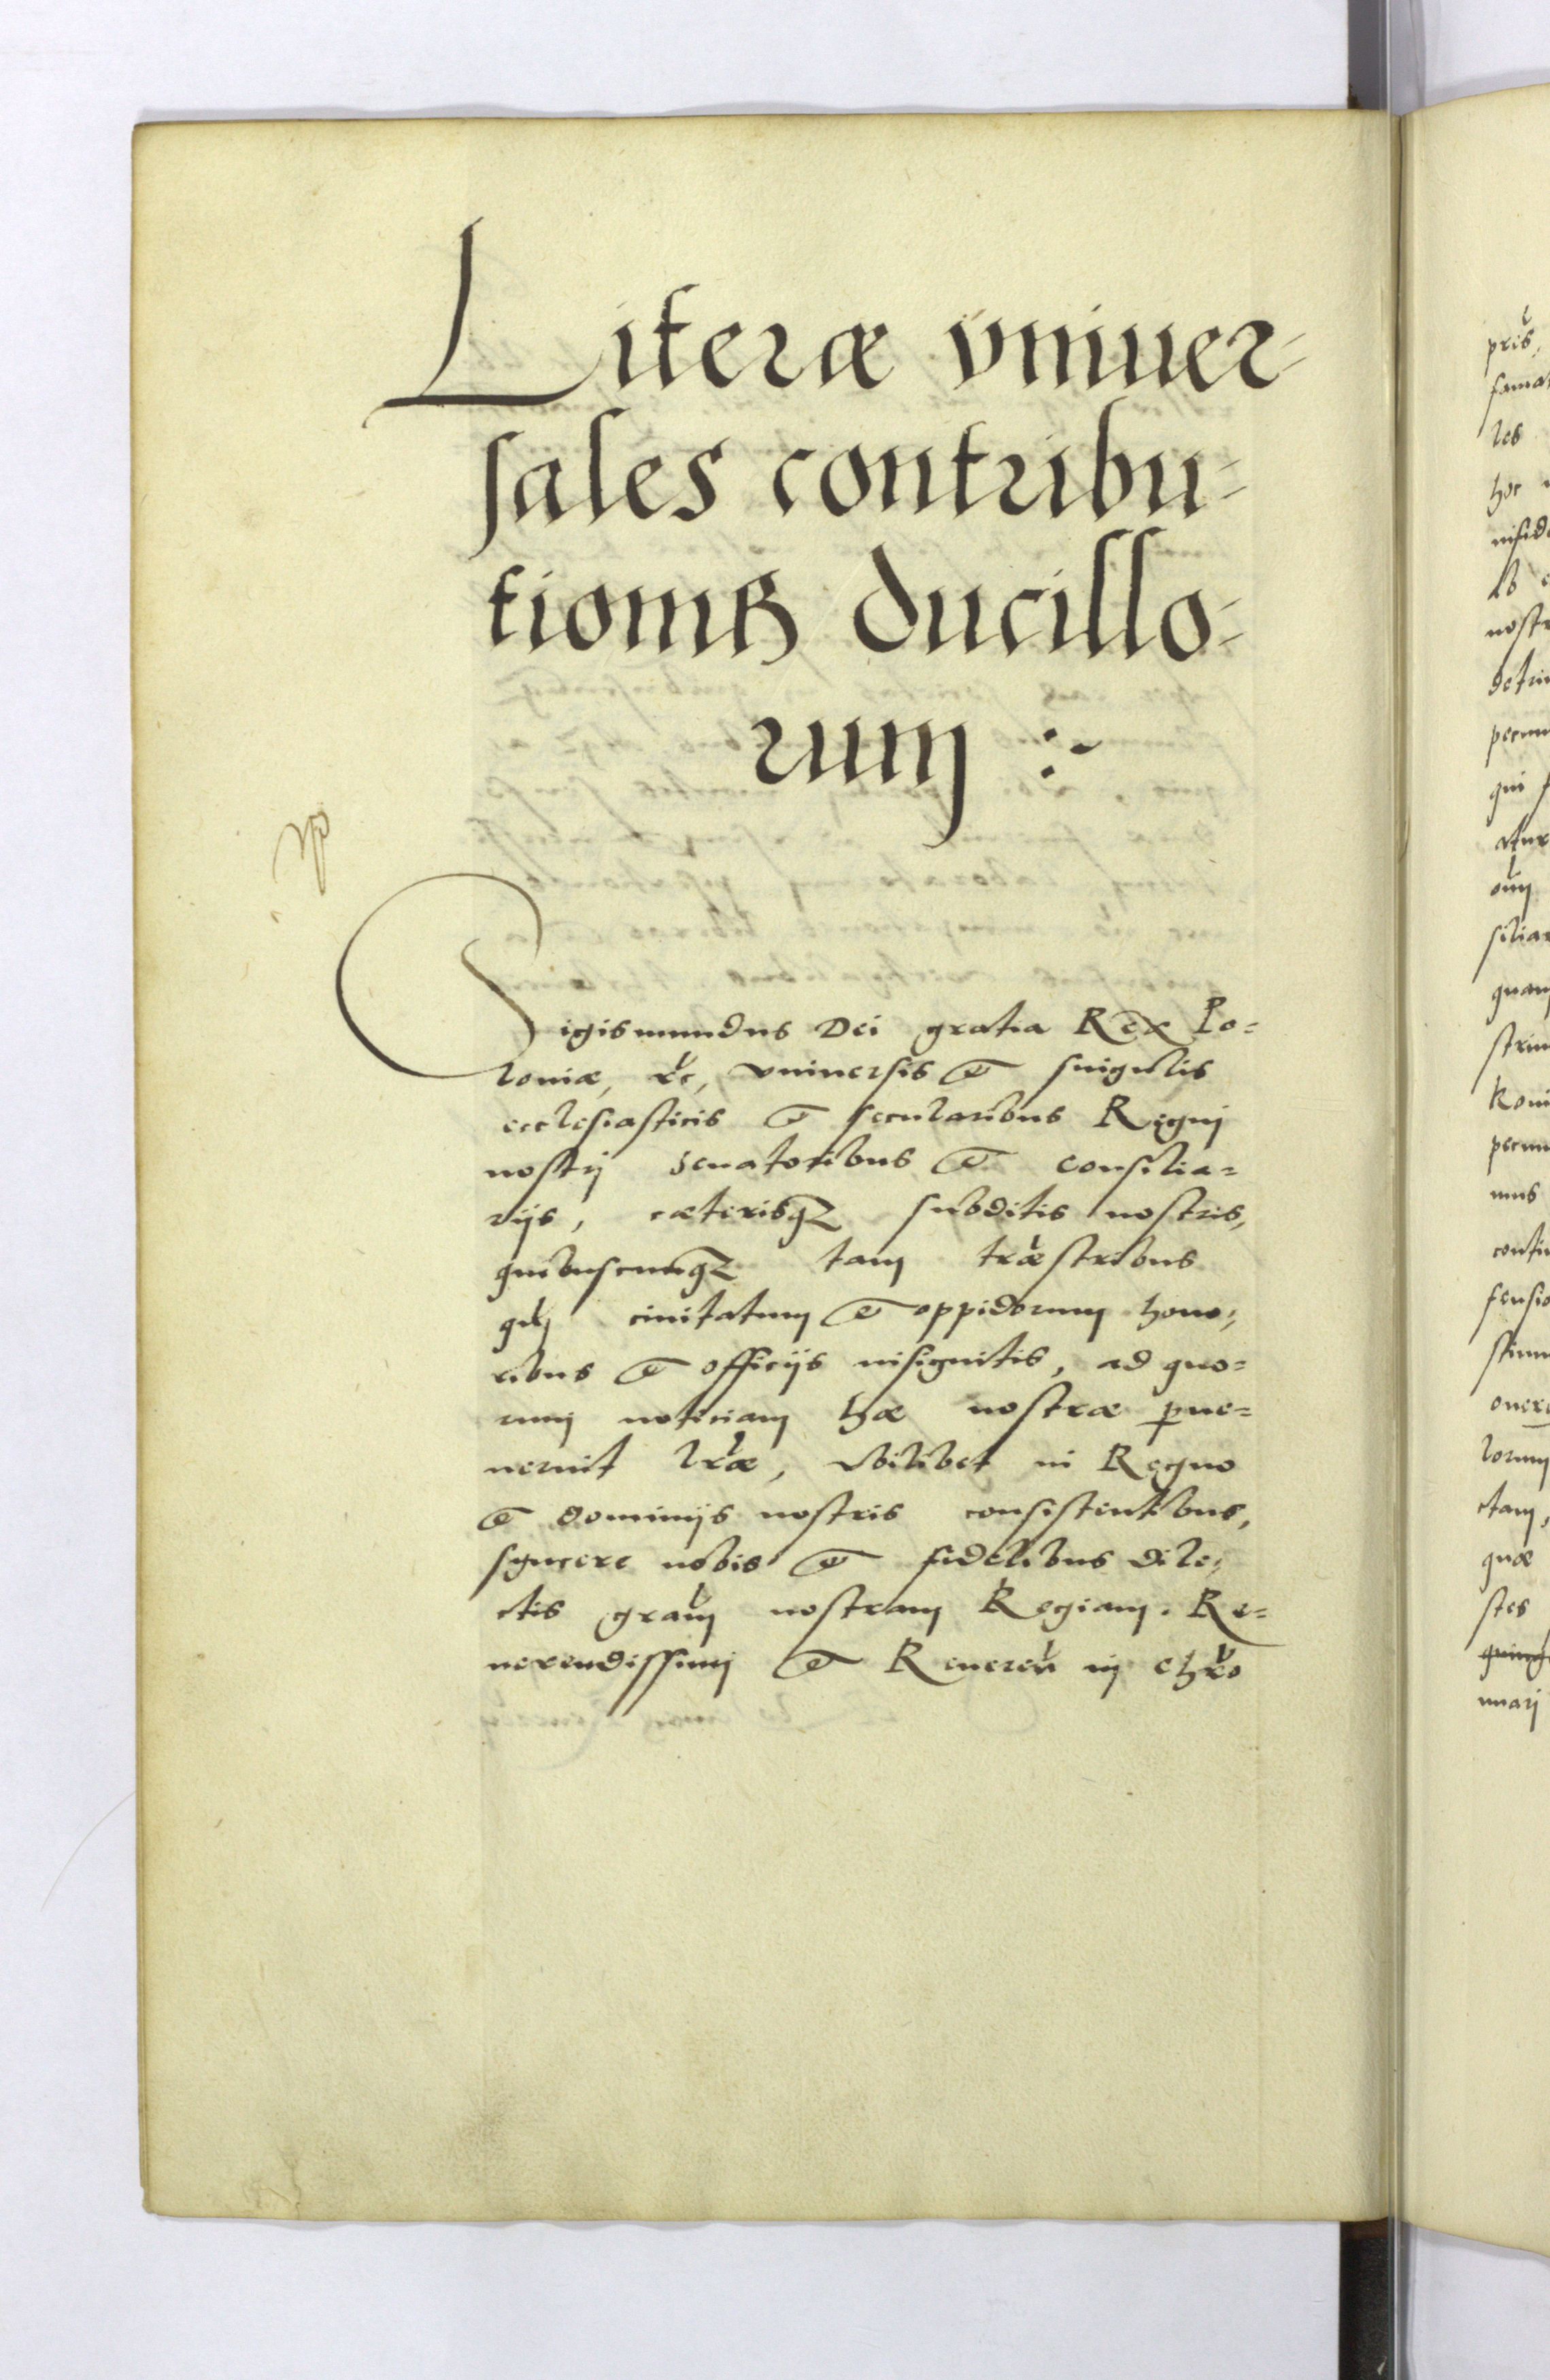 Literæ vniuer-
sales contribu-
tionis ducillo-
rum :~
Sigismundus Dei gratia Rex Po=
loniæ, &c, vniuersis et singulis
ecclesiasticis et secularibus Regnj
nostrj Senatoribus et consilia=
rijs, cæterisq; subditis nostris,
quibuscunq; tam træstribus
qͣ ciuitatum et oppidorum hono;
ribus et officijs insignitis, ad quo=
rum noticiam hæ nostræ ꝑue=
nerint lræ, vbilibet in Regno
et dominijs nostris consistentibus,
syncere nobis et fidelibus dile;
ctis gram nostram Regiam. Re=
uerendissimj et Reueren in chro
pris,
les
hoc
nostr
detri
pecun
qui
oem
siliar
quam
strim
pecun
mus
contin
fensio
onere
lorum
ctam,
quæ
stes
nuarj